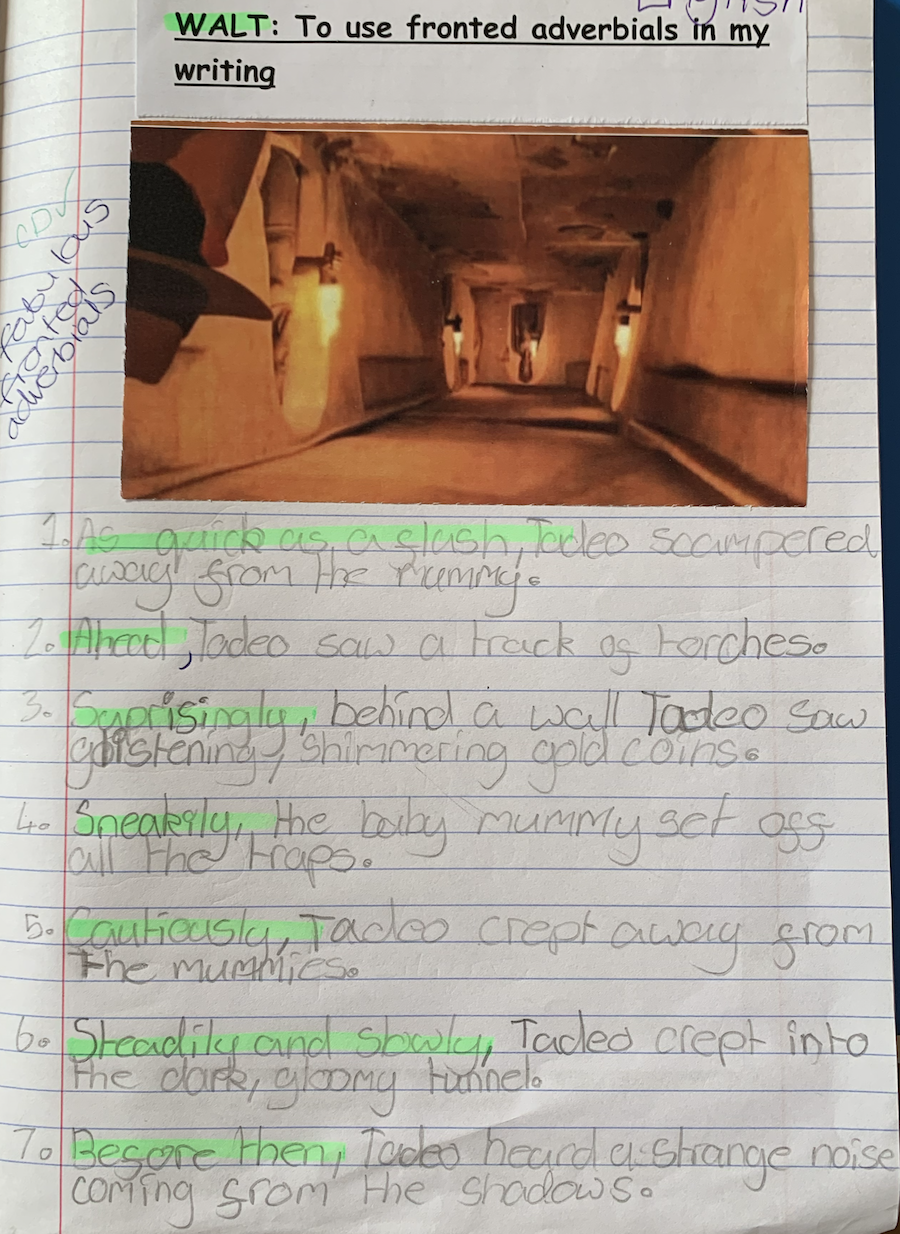 English
WALT: To use fronted adverbials in my
writing
CDV
Fabulous
fronted
adverbials
1. As quick as a flash, Tadeo scampered
away from the mummy.
2. Ahead, Tadeo saw a track of torches.
3. Suprisingly, behind a wall Tadeo saw
glistening, shimmering gold coins.
4. Sneakily, the baby mummy set off
all the traps.
5. Cautiously, Tadeo crept away from
the mummies.
6. Steadily and slowly, Tadeo crept into
the dark, gloomy tunnel.
7. Before then, Tadeo heard a strange noise
coming from the shadows.